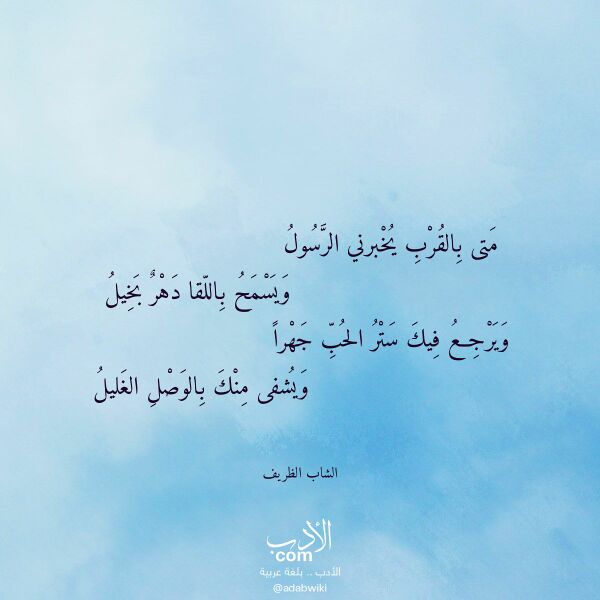 مَتى بِالقُرْبِ يُخْبرني الرَّسُولُ
وَيَسْمَحُ بِاللّقا دَهْرٌ بَخِيلُ
وَيَرْجِعُ فِيكَ سَتْرُ الحُبِّ جَهْراً
وَيُشفى مِنْكَ بِالوَصْلِ الغَليلُ
الشاب الظريف
الأدب
com
الأدب .. بلغة عربية
@adabwiki